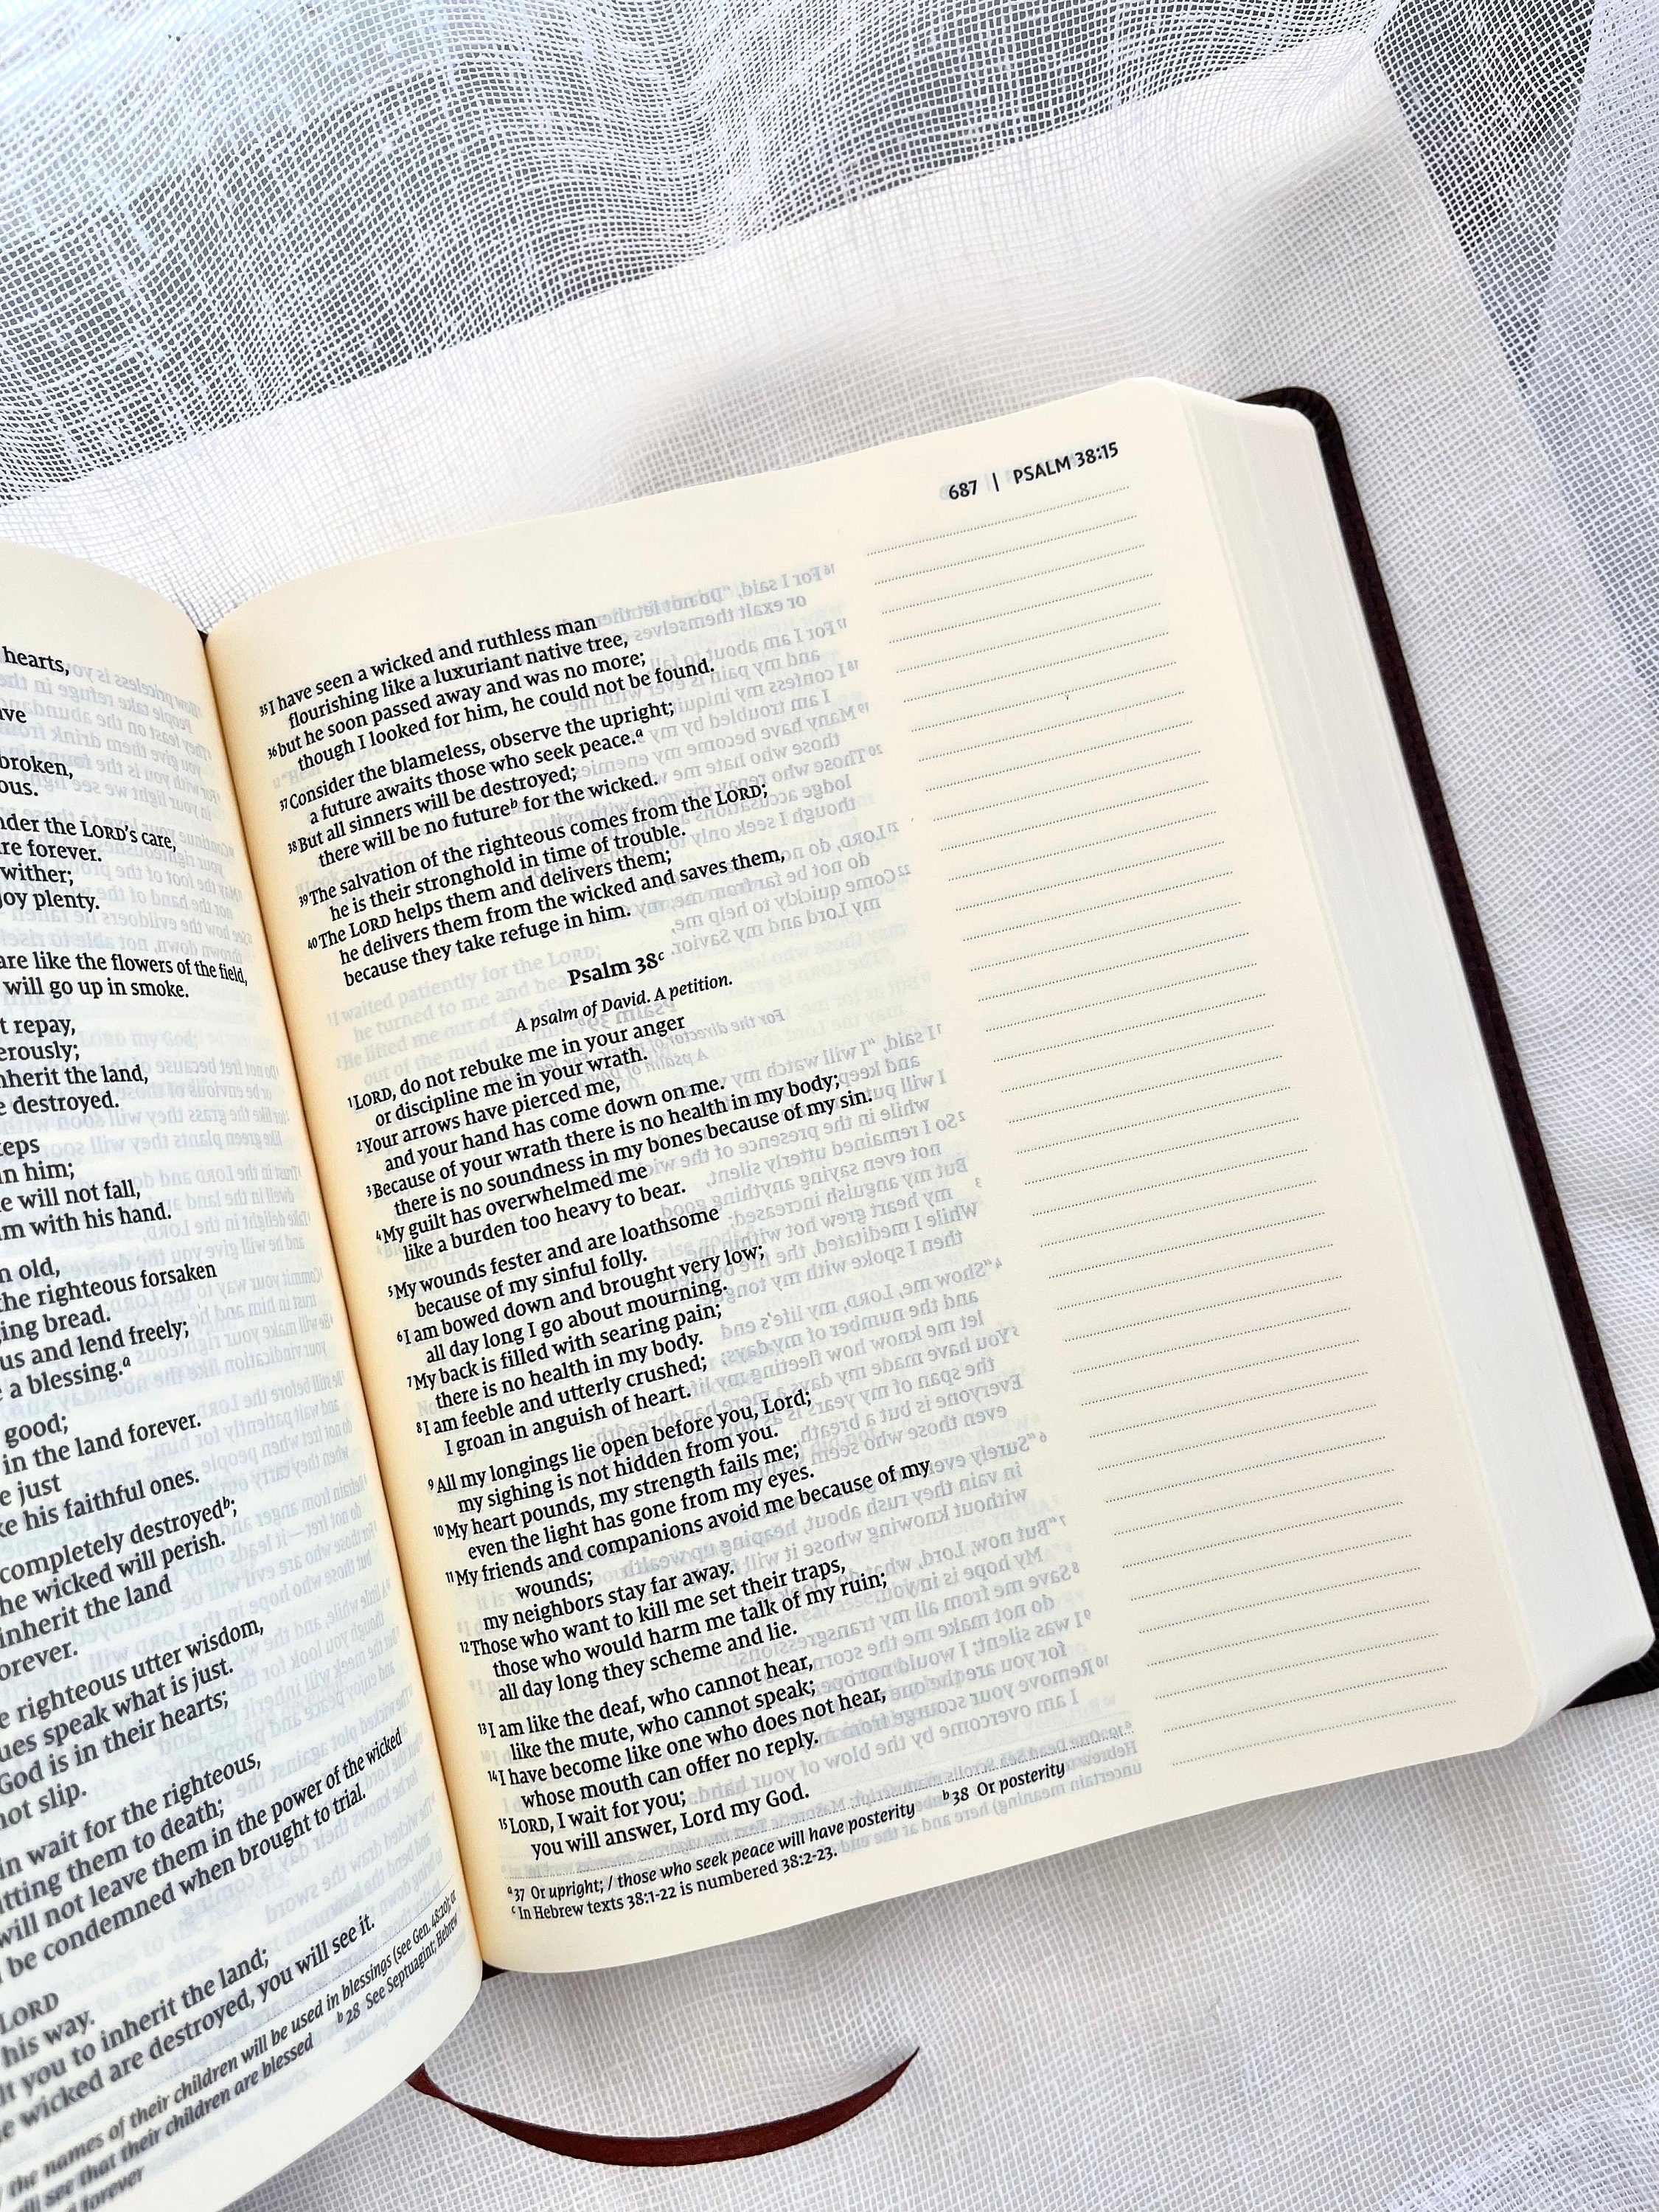 hearts,
ve
broken,
ous.
der the LORD's care,
re forever.
wither;
joy plenty.
are like the flowers of the field,
will go up in smoke.
t repay,
erously;
nherit the land,
e destroyed.
teps
in him;
e will not fall,
m with his hand.
n old,
the righteous forsaken
ing bread.
us and lend freely;
a blessing.a
good;
in the land forever.
e just
ke his faithful ones.
completely destroyedb;
he wicked will perish.
inherit the land
orever.
e righteous utter wisdom,
ues speak what is just.
God is in their hearts;
not slip.
in wait for the righteous,
utting them to death;
will not leave them in the power of the wicked
be condemned when brought to trial.
LORD
his way.
lt you to inherit the land;
e wicked are destroyed, you will see it.
the names of their children will be used in blessings (see Gen. 48:20); or
see that their children are blessed b 28 See Septuagint; Hebrew
forever
687 | PSALM 38:15
35 I have seen a wicked and ruthless man
flourishing like a luxuriant native tree,
36 but he soon passed away and was no more;
though I looked for him, he could not be found.
37 Consider the blameless, observe the upright;
a future awaits those who seek peace.a
38 But all sinners will be destroyed;
there will be no futureb for the wicked.
39 The salvation of the righteous comes from the LORD;
he is their stronghold in time of trouble.
40 The LORD helps them and delivers them;
he delivers them from the wicked and saves them,
because they take refuge in him.
Psalm 38c
A psalm of David. A petition.
1 LORD, do not rebuke me in your anger
or discipline me in your wrath.
2 Your arrows have pierced me,
and your hand has come down on me.
3 Because of your wrath there is no health in my body;
there is no soundness in my bones because of my sin.
4 My guilt has overwhelmed me
like a burden too heavy to bear.
5 My wounds fester and are loathsome
because of my sinful folly.
6 I am bowed down and brought very low;
all day long I go about mourning.
7 My back is filled with searing pain;
there is no health in my body.
8 I am feeble and utterly crushed;
I groan in anguish of heart.
9 All my longings lie open before you, Lord;
my sighing is not hidden from you.
10 My heart pounds, my strength fails me;
even the light has gone from my eyes.
11 My friends and companions avoid me because of my
wounds;
my neighbors stay far away.
12 Those who want to kill me set their traps,
those who would harm me talk of my ruin;
all day long they scheme and lie.
13 I am like the deaf, who cannot hear,
like the mute, who cannot speak;
14 I have become like one who does not hear,
whose mouth can offer no reply.
15 LORD, I wait for you;
you will answer, Lord my God.
a 37 Or upright; / those who seek peace will have posterity b 38 Or posterity
c In Hebrew texts 38:1-22 is numbered 38:2-23.